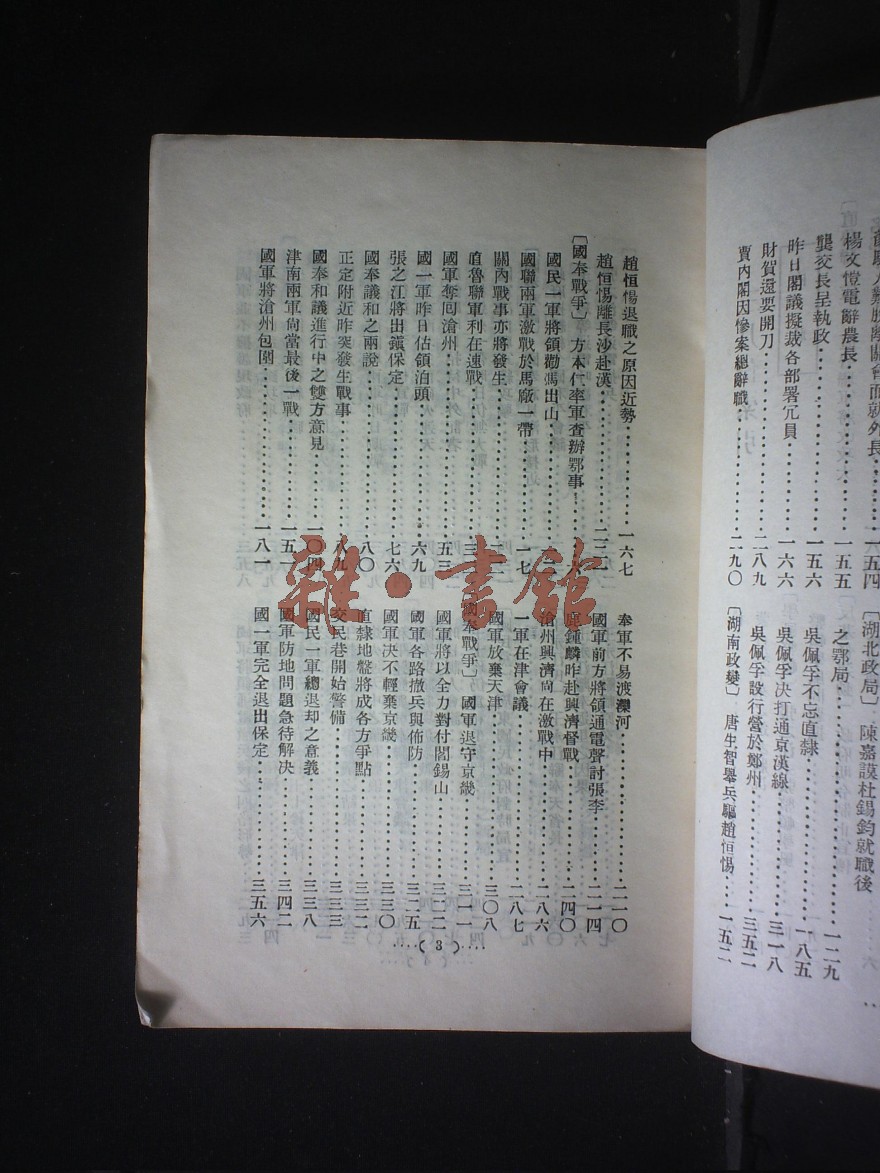 楊文愷電辭農長……一五五
龔交長呈執政……一五六
昨日閣議擬裁各部署冗員……一六六
財賀還要開刀……二八九
賈內閣因慘案總辭職……二九〇
〔湖北政局〕陳嘉謨杜錫鈞就職後
之鄂局……一二九
吳佩孚不忘直隸……一八五
吳佩孚決打通京漢線……三一八
吳佩孚設行營於鄭州……三五二
〔湖南政變〕唐生智舉兵驅趙恒惕……一五二
趙恒惕退職之原因近勢……一六七
趙恒惕離長沙赴漢
〔國奉戰爭〕方本仁率軍查辦鄂事
國民一軍將領勸馮出山
國聯兩軍激戰於馬廠一帶……一七
關內戰事亦將發生
直魯聯軍利在速戰
國軍奪回滄州……五三
國一軍昨日佔領泊頭……六九
張之江將出鎮保定……七六
國奉議和之兩說……八〇
正定附近昨突發生戰事……八九
國奉和議進行中之雙方意見……一〇四
津南兩軍尚當最後一戰……一五一
國軍將滄州包圍……一八一
奉軍不易渡灤河……二一〇
國軍前方將領通電聲討張李……二一四
鹿鍾麟昨赴興濟督戰……二四〇
滄州興濟尚在激戰中……二八六
一軍在津會議……二八七
國軍放棄天津……三〇八
〔國奉戰爭〕國軍退守京畿……三一一
國軍將以全力對付閻錫山……三二二
國軍各路撤兵與佈防……三二五
國軍決不輕棄京畿……三三〇
直隸地盤將成各方爭點……三三二
交民巷開始警備……三三三
國民一軍總退却之意義……三三八
國軍防地問題急待解決……三四二
國一軍完全退出保定……三五六
····( 3 )····
雜·書館